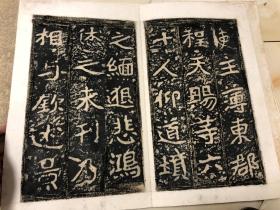 主簿東郡
程天賜等六
十人仰道墳
之緬邈悲鴻
休之未刊乃
相与欽述景